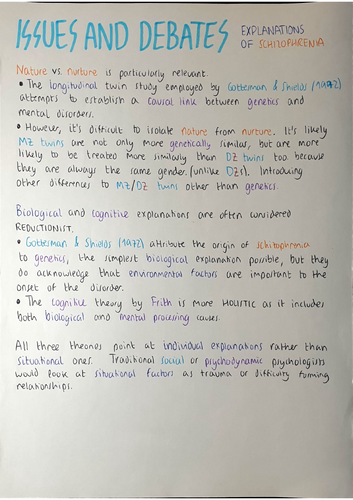 ISSUES AND DEBATES EXPLANATIONS
OF SCHIZOPHRENIA
Nature vs. nurture is particularly relevant.
• The longitudinal twin study employed by Gottesman & Shields (1972)
attempts to establish a causal link between genetics and
mental disorders.
• However, it's difficult to isolate nature from nurture. It's likely
MZ twins are not only more genetically similar, but are more
likely to be treated more similarly than DZ twins too because
they are always the same gender (unlike DZs). Introducing
other differences to MZ/DZ twins other than genetics.
Biological and cognitive explanations are often considered
REDUCTIONIST.
• Gottesman & Shields (1972) attribute the origin of schizophrenia
to genetics, the simplest biological explanation possible, but they
do acknowledge that environmental factors are important to the
onset of the disorder.
• The cognitive theory by Frith is more HOLISTIC as it includes
both biological and mental processing causes.
All three theories point at individual explanations rather than
situational ones. Traditional social or psychodynamic psychologists
would look at situational factors as trauma or difficulty forming
relationships.